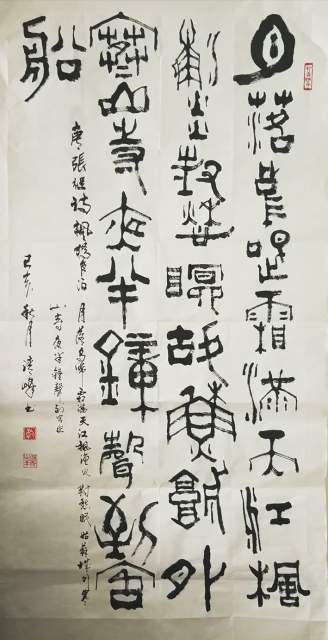 月落烏啼霜滿天江楓
漁火對愁眠姑蘇城外
寒山寺夜半鐘聲到客
船
唐張繼詩楓橋夜泊 月落烏啼霜滿天江楓漁火對愁眠姑蘇城外寒
山寺夜半鐘聲到客船
己亥秋月清峰书